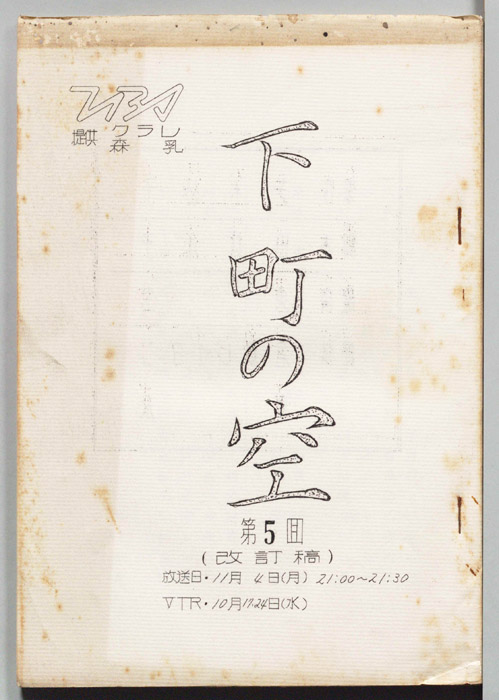 提供 クラレ
森 乳
下町の空
第5回
(改訂稿)
放送日・11月 4日(月) 21:00~21:30
VTR・10月